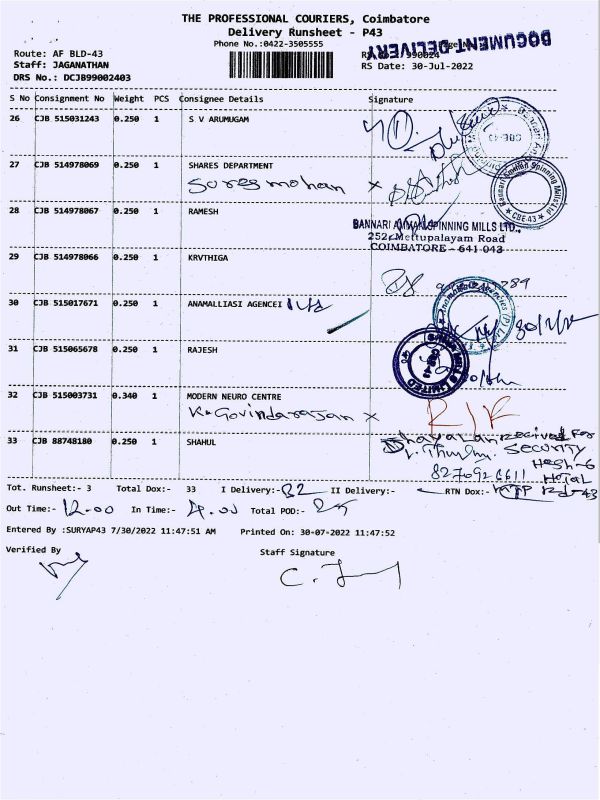 THE PROFESSIONAL COURIERS, Coimbatore
Delivery Runsheet - P43
Phone No.:0422-3505555
DOCUMENT DELIVERY
Route: AF BLD-43
Staff: JAGANATHAN
RS Date: 30-Jul-2022
DRS No.: DCJB99002403
S No Consignment No Weight PCS Consignee Details Signature
26 CJB 515031243 0.250 1 S V ARUMUGAM
27 CJB 514978069 0.250 1 SHARES DEPARTMENT
mohan x
28 CJB 514978067 0.250 1 RAMESH
BANNARI AMMAN SPINNING MILLS LTD.,
252, Mettupalayam Road
COIMBATORE - 641 043
29 CJB 514978066 0.250 1 KRVTHIGA
30 CJB 515017671 0.250 1 ANAMALLIASI AGENCEI
31 CJB 515065678 0.250 1 RAJESH
32 CJB 515003731 0.340 1 MODERN NEURO CENTRE
K. Govindarajan x
33 CJB 88748180 0.250 1 SHAHUL
Received For
SECURITY
Tot. Runsheet:- 3 Total Dox:- 33 I Delivery:- II Delivery:- RTN Dox:-
Out Time:- 12.00 In Time:- Total POD:-
Entered By :SURYAP43 7/30/2022 11:47:51 AM Printed On: 30-07-2022 11:47:52
Verified By Staff Signature